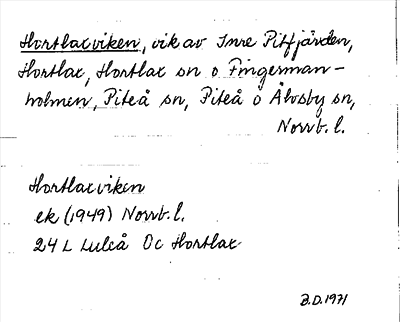 Hortlaxviken, vik av Inre Pitfjärden,
Hortlax, Hortlax sn o Fingerman-
holmen, Piteå sn, Piteå o Älvsby sn,
Norrb. l.
Hortlaxviken
ek (1949) Norrb. l.
24 L Luleå Öc Hortlax
B.D. 1971